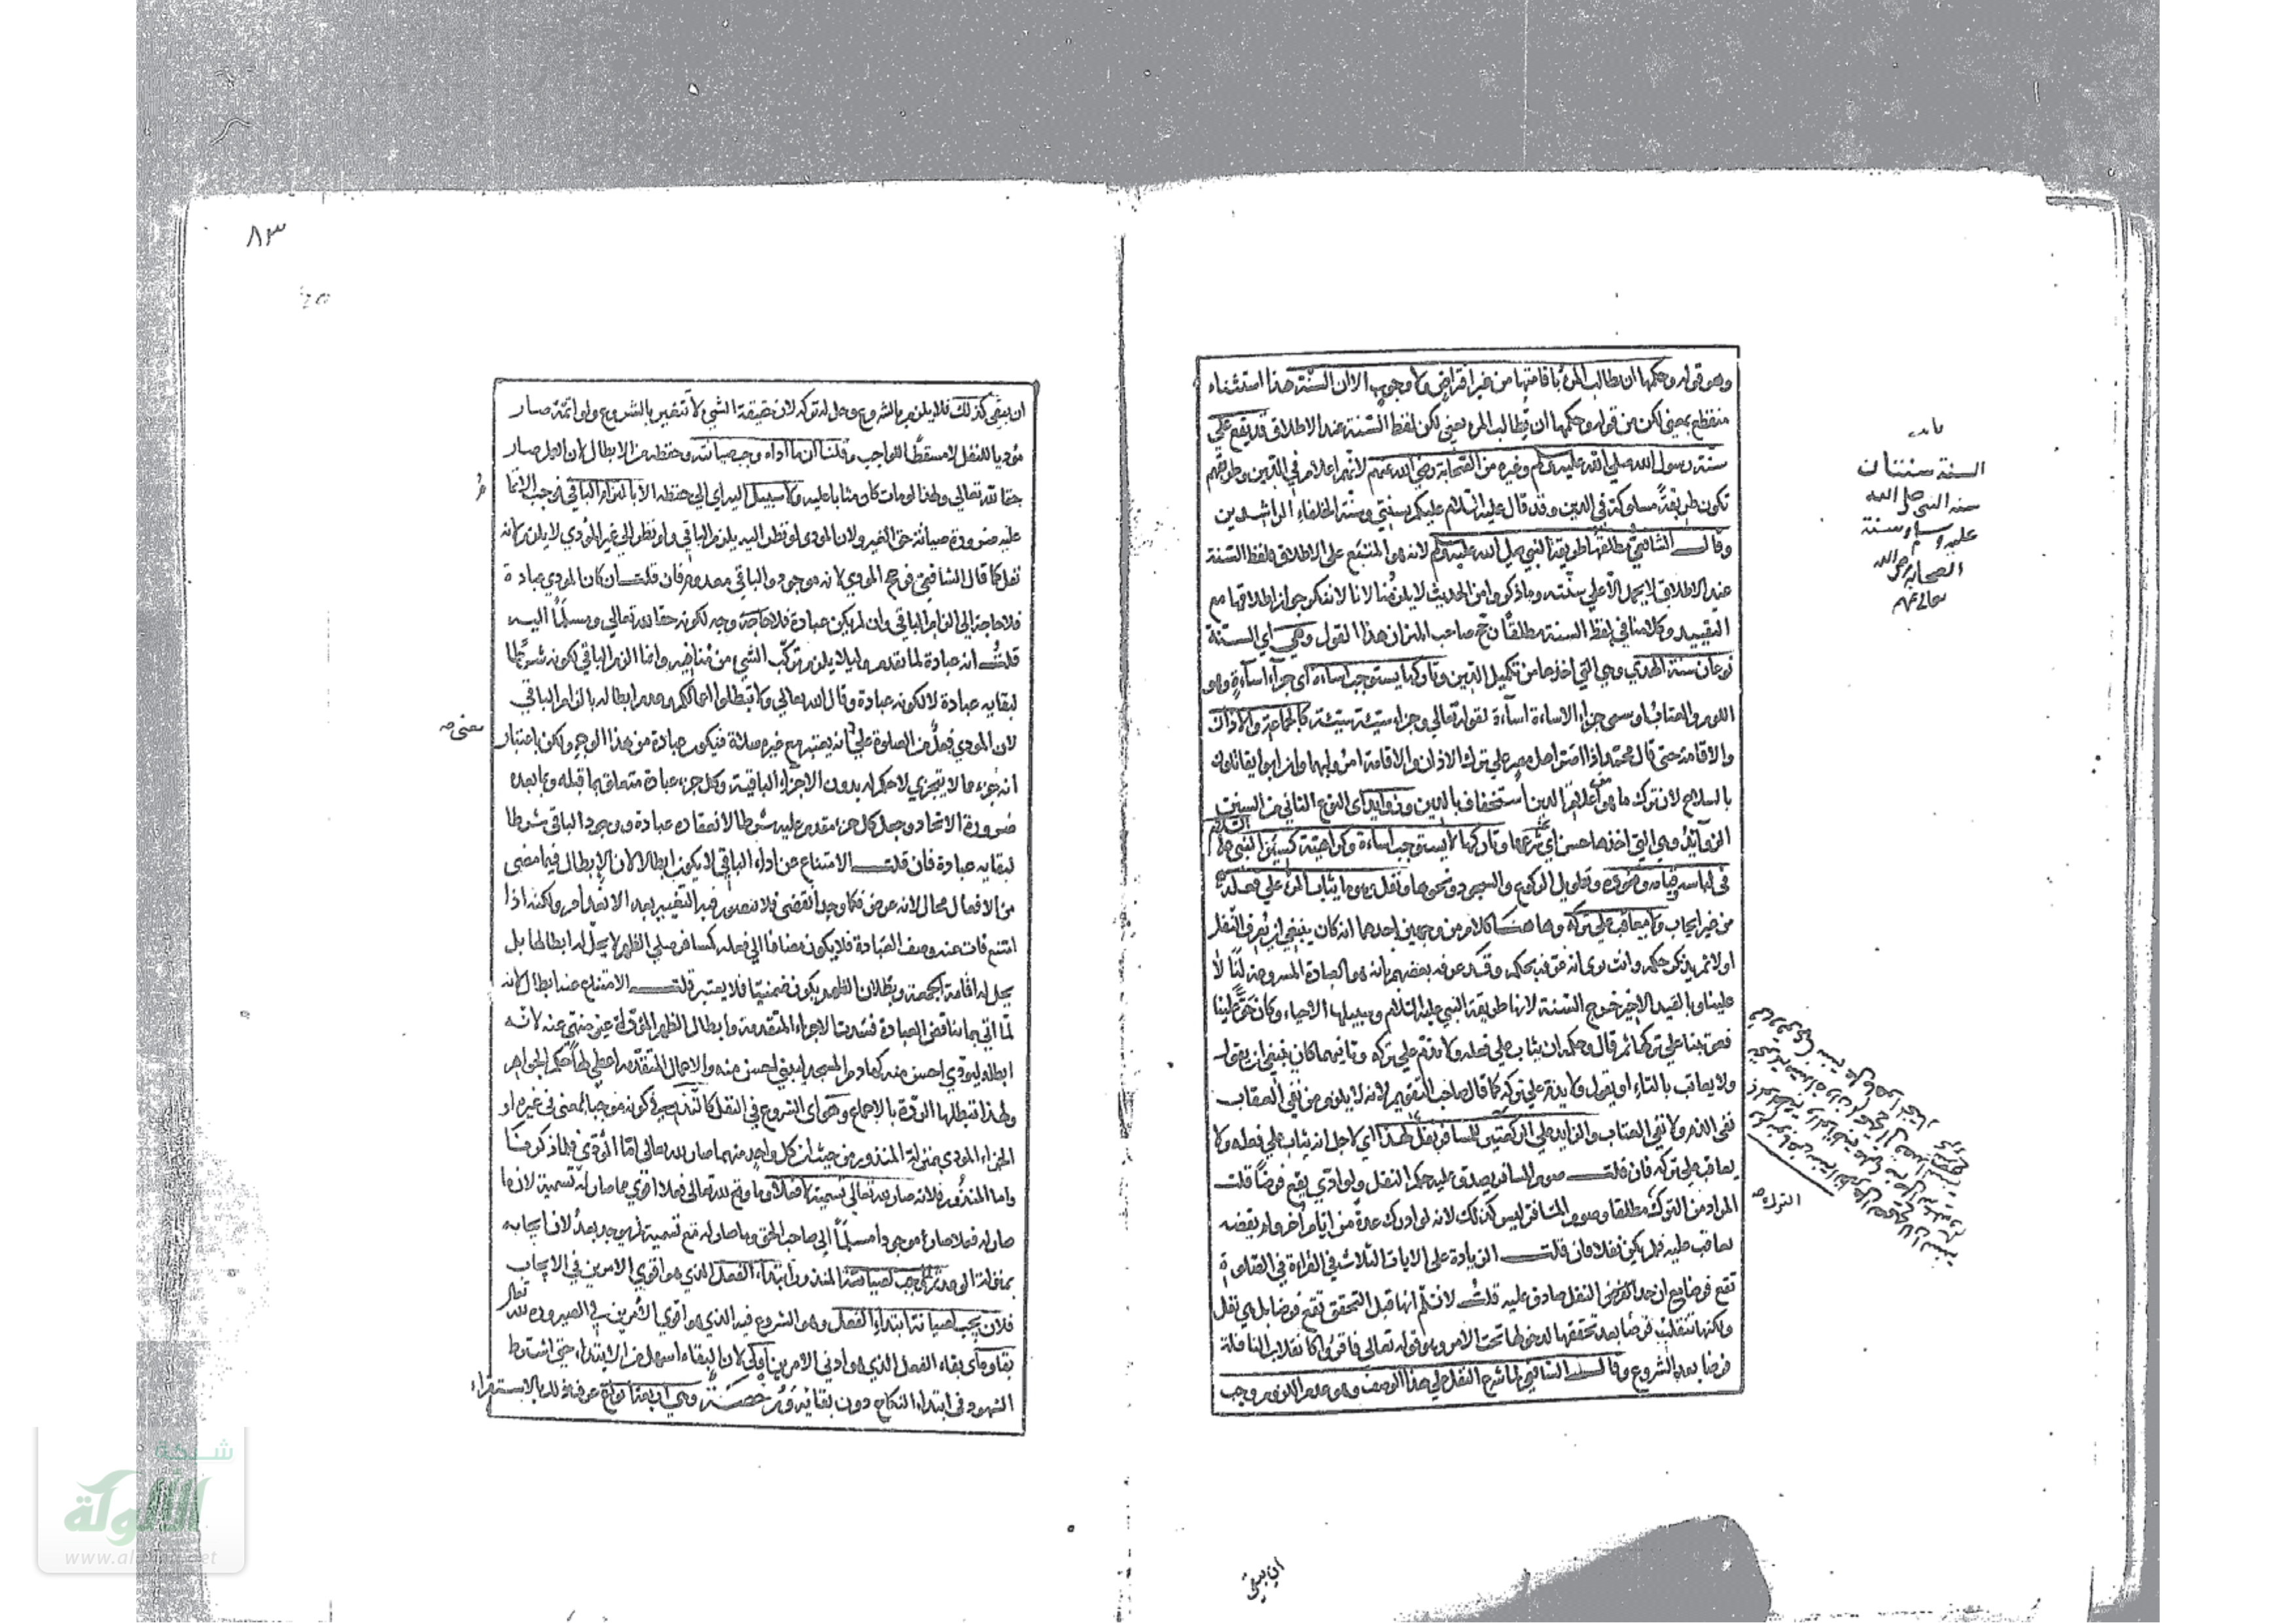 وهو قوله وحكمها ان يطالب المرء باقامتها من غير افتراض ولا وجوب الا ان السنة هذا استثناء
منقطع بمعنى لكن من قوله وحكمها ان يطالب المرء يعني لكن لفظ السنة عند الاطلاق قد يقع على
سنة رسول الله صلى الله عليه وسلم وغيره من الصحابة رضي الله عنهم لانهم اعلام في الدين وطريقهم
تكون طريقة مسلوكة في الدين وقد قال عليه السلام عليكم بسنتي وسنة الخلفاء الراشدين
وقال الشافعي مطلقها طريقة النبي صلى الله عليه وسلم لانه هو المتبع على الاطلاق فلفظ السنة
عند الاطلاق لا يحمل الا على سنته وما ذكروا من الحديث لا يلزمنا لانا لا ننكر جواز اطلاقها مع
التقييد وكلامنا في لفظ السنة مطلقا رجح صاحب الميزان هذا القول وهي اي السنة
نوعان سنة الهدي وهي التي اخذها من تكميل الدين وتاركها يستوجب اساءة اي جزاء اساءة وهو
اللوم والعتاب او سمى جزاء الاساءة اساءة لقوله تعالى وجزاء سيئة سيئة كالجماعة والاذان
والاقامة حتى قال محمد اذا اصر اهل مصر على ترك الاذان والاقامة امروا بهما وان ابوا يقاتلون
بالسلاح لان ترك ما هو من اعلام الدين استخفاف بالدين وزوايد اي النوع الثاني من السنن
الزوائد وهي التي اخذها حسن اي وتاركها لا يستوجب اساءة وكراهية كسنن النبي عليه السلام
في لباسه وقيامه وقعوده وتطويل الركوع والسجود ونحوها ونفل وهو ما يثاب المرء على فعله
من غير ايجاب ولا يعاقب على تركه وهاهنا كلام من وجهين احدهما انه كان ينبغي ان يعرف النفل
اولا ثم يذكر حكمه وانت ترى انه عرفه بحكمه وقد عرفه بعضهم بانه هو العبادة المشروعة لنا لا
علينا وبالقيد الاخير خرج السنة لانها طريقة النبي عليه السلام وسبيلها الاحياء وكان حقا علينا
فعوتبنا على تركها ثم قال وحكمه ان يثاب على فعله ولا يذم على تركه وثانيهما كان ينبغي ان يقول
ولا يعاتب بالتاء او يقول ولا يذم على تركه كما قال صاحب التقويم لانه لا يلزم من نفي العقاب
نفي الذم ولا نفي العتاب والزايد على الركعتين للمسافر نفل لهذا اي لاجل انه يثاب على فعله ولا
يعاقب على تركه فان قلت صوم المسافر يصدق عليه حكم النفل ولو ادي يقع فرضا قلت
المراد من الترك مطلقا وصوم المسافر ليس كذلك لانه لو ادرك عدة من ايام اخر ولم يقضه
يعاقب عليه فلم يكن نفلا فان قلت الزيادة على الايات الثلاث في القراءة في الصلوة
تقع فرضا مع ان حد النفل صادق عليه قلت لا نسلم انها قبل التحقق تقع فرضا بل هي نفل
ولكنها تنقلب فرضا بعد تحققها لدخولها تحت الامر وهو قوله تعالى فاقرؤا كانقلاب النافلة
فرضا بعد الشروع وقال الشافعي لما شرع النفل على هذا الوصف وهو عدم اللزوم وجب
السنة سنتان
سنة النبي صلى الله
عليه وسلم وسنة
الصحابة رضي الله
تعالى عنهم
الترك صح
ان يبقى
٨٣
ان يبقى كذلك فلا يلزم بالشروع وحل له تركه لان حقيقة الشيء لا تتغير بالشروع ولو اتمه صار
مؤديا للنفل لا مسقطا للواجب وقلنا ان ما اداه وجب صيانته وحفظه من الابطال لان العمل صار
حقا لله تعالى ولهذا لو مات كان مثابا عليه ولا سبيل اليه اي الى حفظه الا بالزام الباقي فوجب الاتمام
عليه ضرورة صيانة حق الغير ولان المودى لو نظر اليه يلزم الباقي ولو نظر الى غير المؤدي لا يلزم لانه
نفل كما قال الشافعي فرجح المودي لانه موجود والباقي معدوم فان قلت ان كان المودي عبادة
فلا حاجة الى الزام الباقي وان لم يكن عبادة فلا حاجة وجه لكونه حقا لله تعالى ومسلما اليه
قلت انه عبادة لما تقدم وليلا يلزم تركب الشيء من مناقضه وانما الزم الباقي لكونه شرطا
لبقايه عبادة لا لكونه عبادة وقال الله تعالى ولا تبطلوا اعمالكم وعدم ابطاله بالزام الباقي
لان المودي فعل من الصلوة على معنى انه يعتبر مع غيره صلاة فيكون عبادة من هذا الوجه ولكن باعتبار
انه جزء مما لا يتجزي لا حكم له بدون الاجزاء الباقية وكل جزء عبادة متعلق بما قبله وبما بعده
ضرورة الاتحاد وجعل كل جزء متقدم عليه شرطا لانعقاده عبادة ووجود الباقي شرطا
لبقايه عبادة فان قلت الامتناع عن اداء الباقي لا يكون ابطالا لان الابطال فيما مضى
من الافعال محال لانه عرض فكما وجد انقضى فلا نتصور فيه التغيير بعد الانعدام ولكنه اذا
امتنع فات عنه وصف العبادة فلا يكون مضافا الى فعله كمسافر صلى الظهر لا يحل له ابطالها بل
يحل له اقامة الجمعة وبطلان الظهر يكون ضمنيا فلا يعتبر قلت الامتناع عنه ابطال لانه
لما اتى بما يناقض العبادة فسدت الاجزاء المتقدمة وابطال الظهر المؤداة غير منهي عنه لانه
ابطله ليودي احسن منه كهادم المسجد ليبني احسن منه والاعمال المتقدمة اعطي لها حكم الجواهر
ولهذا تبطلها الردة بالاجماع وهو اي الشروع في النفل كالنذر في كونه موجبا لمعنى في غيره او
الجزاء المودي بمنزلة المنذور من حيث ان كل واحد منهما صار لله تعالى اما المؤدي فلما ذكرنا
واما المنذور فلانه صار لله تعالى تسمية لا فعلا وما وقع لله تعالى فعلا اقوى مما صار له تسمية لان ما
صار له فعلا صار موجودا مسلما الى صاحب الحق وما صار له مع تسمية لم يوجد بعد لان ايجابه
بمنزلة الوعد ثم وجب لصيانته المنذور ابتداء الفعل الذي هو اقوي الامرين في الايجاب
فلان يجب لصيانة ابتداء الفعل وهو الشروع فيه الذي هو اقوي الامرين في الصيرورة لله تعالى
بقاوه اي بقاء الفعل الذي هو ادنى الامرين اولى لان البقاء اسهل من الابتداء حتى اشترط
الشهود في ابتداء النكاح دون بقائه ورخصة وهي اربعة انواع عرف ذلك بالاستقراء
معنى صح
شبكة
الألوكة